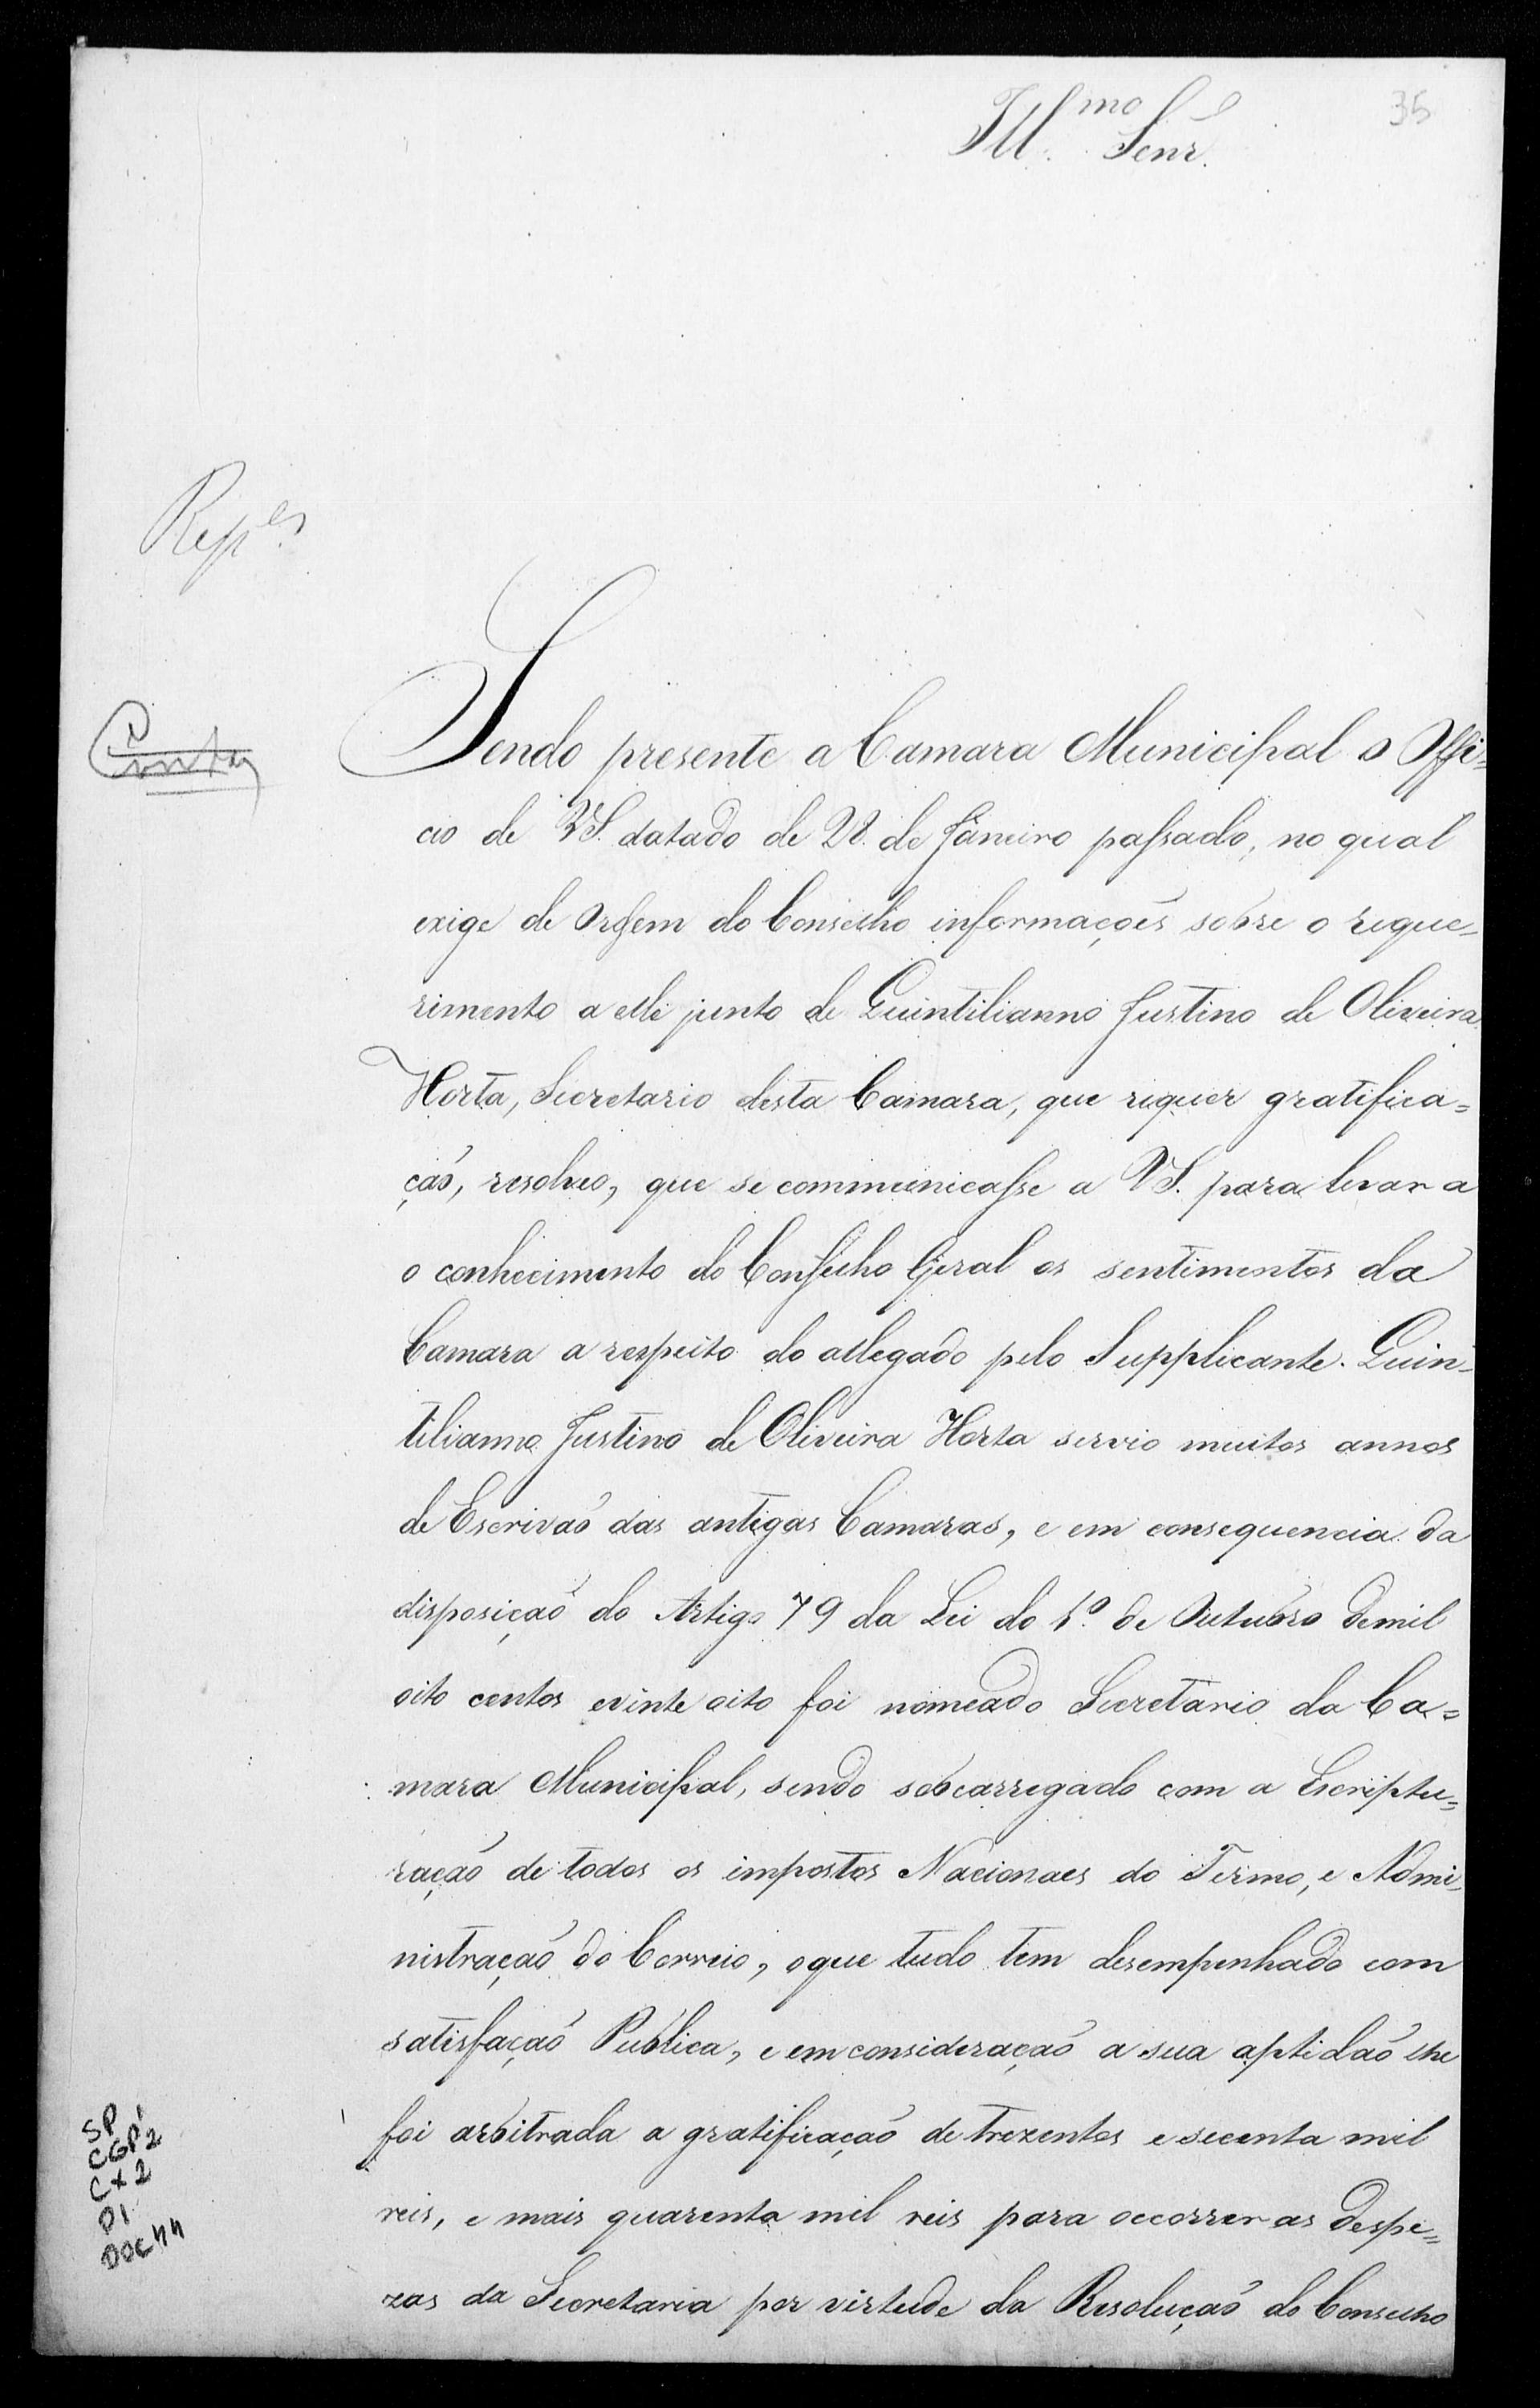 Ill.mo Senr.
35
Rep.es
Sendo presente a Camara Municipal o Offi=
cio de VS. datado de 28. de Janeiro passado, no qual
exige de Ordem do Conselho informações sobre o reque=
rimento a elle junto de Quintilianno Justino de Oliveira
Horta, Secretario desta Camara, que requer gratifica=
çaõ, resolveo, que se communicasse a VS. para levar a
o conhecimento do Conselho Geral os sentimentos da
Camara a respeito do allegado pelo Supplicante. Quin=
tilianno Justino de Oliveira Horta servio muitos annos
de Escrivaõ das antigas Camaras, e em consequencia da
disposiçaõ do Artigo 79 da Lei do 1º. de Outubro de mil
oito centos e vinte oito foi nomeado Secretario da Ca=
mara Municipal, sendo sobcarregado com a Escriptu=
raçaõ de todos os impostos Nacionaes do Termo, e Admi=
nistraçaõ do Correio, o que tudo tem desempenhado com
satisfaçaõ Publica, e em consideraçaõ a sua aptidaõ lhe
foi arbitrada a gratificaçaõ de trezentos e secenta mil
reis, e mais quarenta mil reis para occorrer as despe=
zas da Secretaria por virtude da Resoluçaõ do Conselho
SP
CGP1
CX2
D1
DOC44